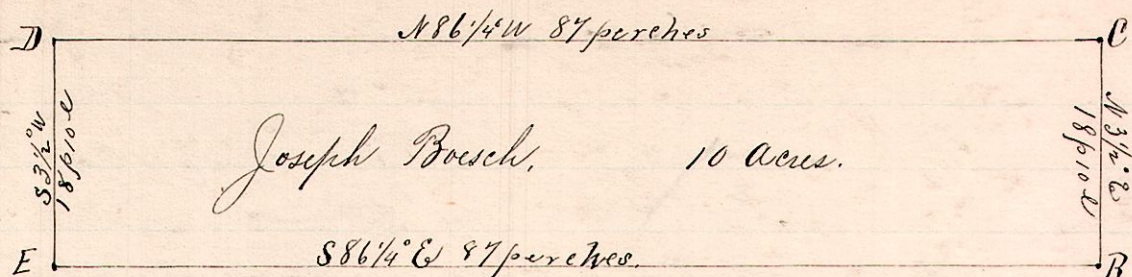 N 86 1/4° W 87 perches
D
C
S 3 1/2° W
18 p 10 l
Joseph Boesch, 10 Acres.
N 3 1/2° E
18 p 10 l
E
S 86 1/4° E 87 perches.
B